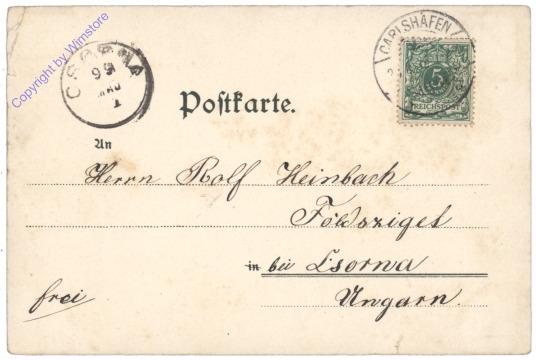 Copyright by Wimstore
CSORNA
99
MAJ
1
CARLSHAFEN
5
REICHSPOST
Postkarte.
An
Herrn Rolf Heinbach
Földsziget
in bei Csorna
Ungarn.
frei